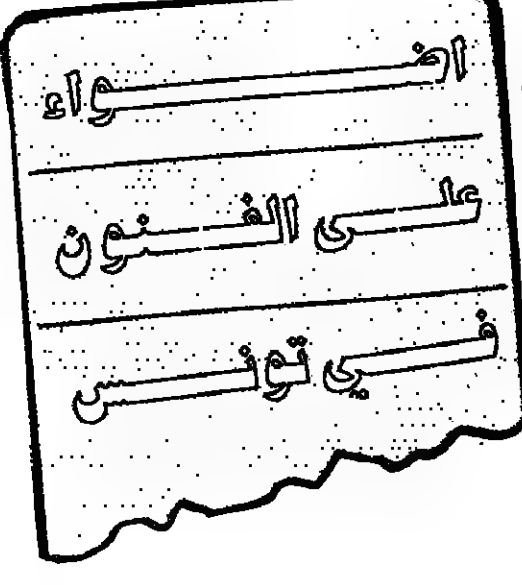 اضواء
على الفنون
في تونس